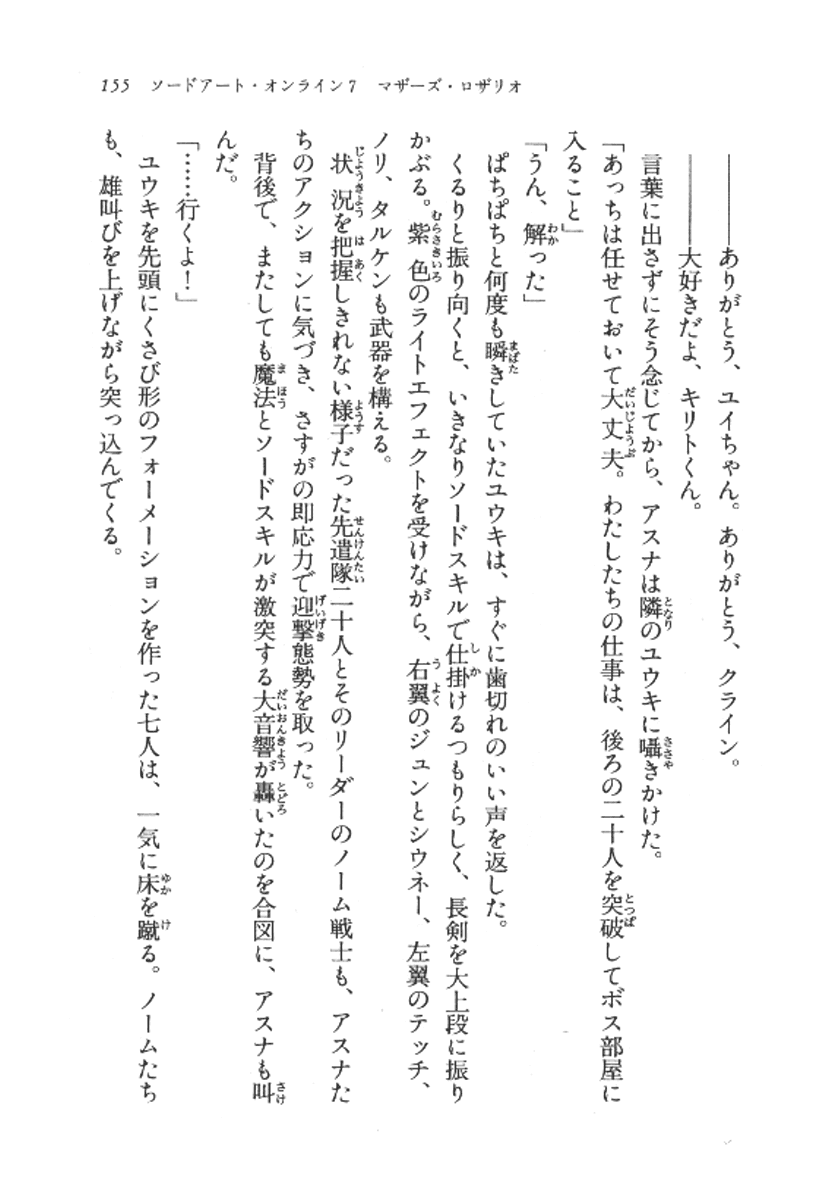 155　ソードアート・オンライン7　マザーズ・ロザリオ
――――ありがとう、ユイちゃん。ありがとう、クライン。
――――大好きだよ、キリトくん。
言葉に出さずにそう念じてから、アスナは隣のユウキに囁きかけた。
「あっちは任せておいて大丈夫。わたしたちの仕事は、後ろの二十人を突破してボス部屋に
入ること」
「うん、解った」
ぱちぱちと何度も瞬きしていたユウキは、すぐに歯切れのいい声を返した。
くるりと振り向くと、いきなりソードスキルで仕掛けるつもりらしく、長剣を大上段に振り
かぶる。紫色のライトエフェクトを受けながら、右翼のジュンとシウネー、左翼のテッチ、
ノリ、タルケンも武器を構える。
状況を把握しきれない様子だった先遣隊二十人とそのリーダーのノーム戦士も、アスナた
ちのアクションに気づき、さすがの即応力で迎撃態勢を取った。
背後で、またしても魔法とソードスキルが激突する大音響が轟いたのを合図に、アスナも叫
んだ。
「……行くよ！」
ユウキを先頭にくさび形のフォーメーションを作った七人は、一気に床を蹴る。ノームたち
も、雄叫びを上げながら突っ込んでくる。